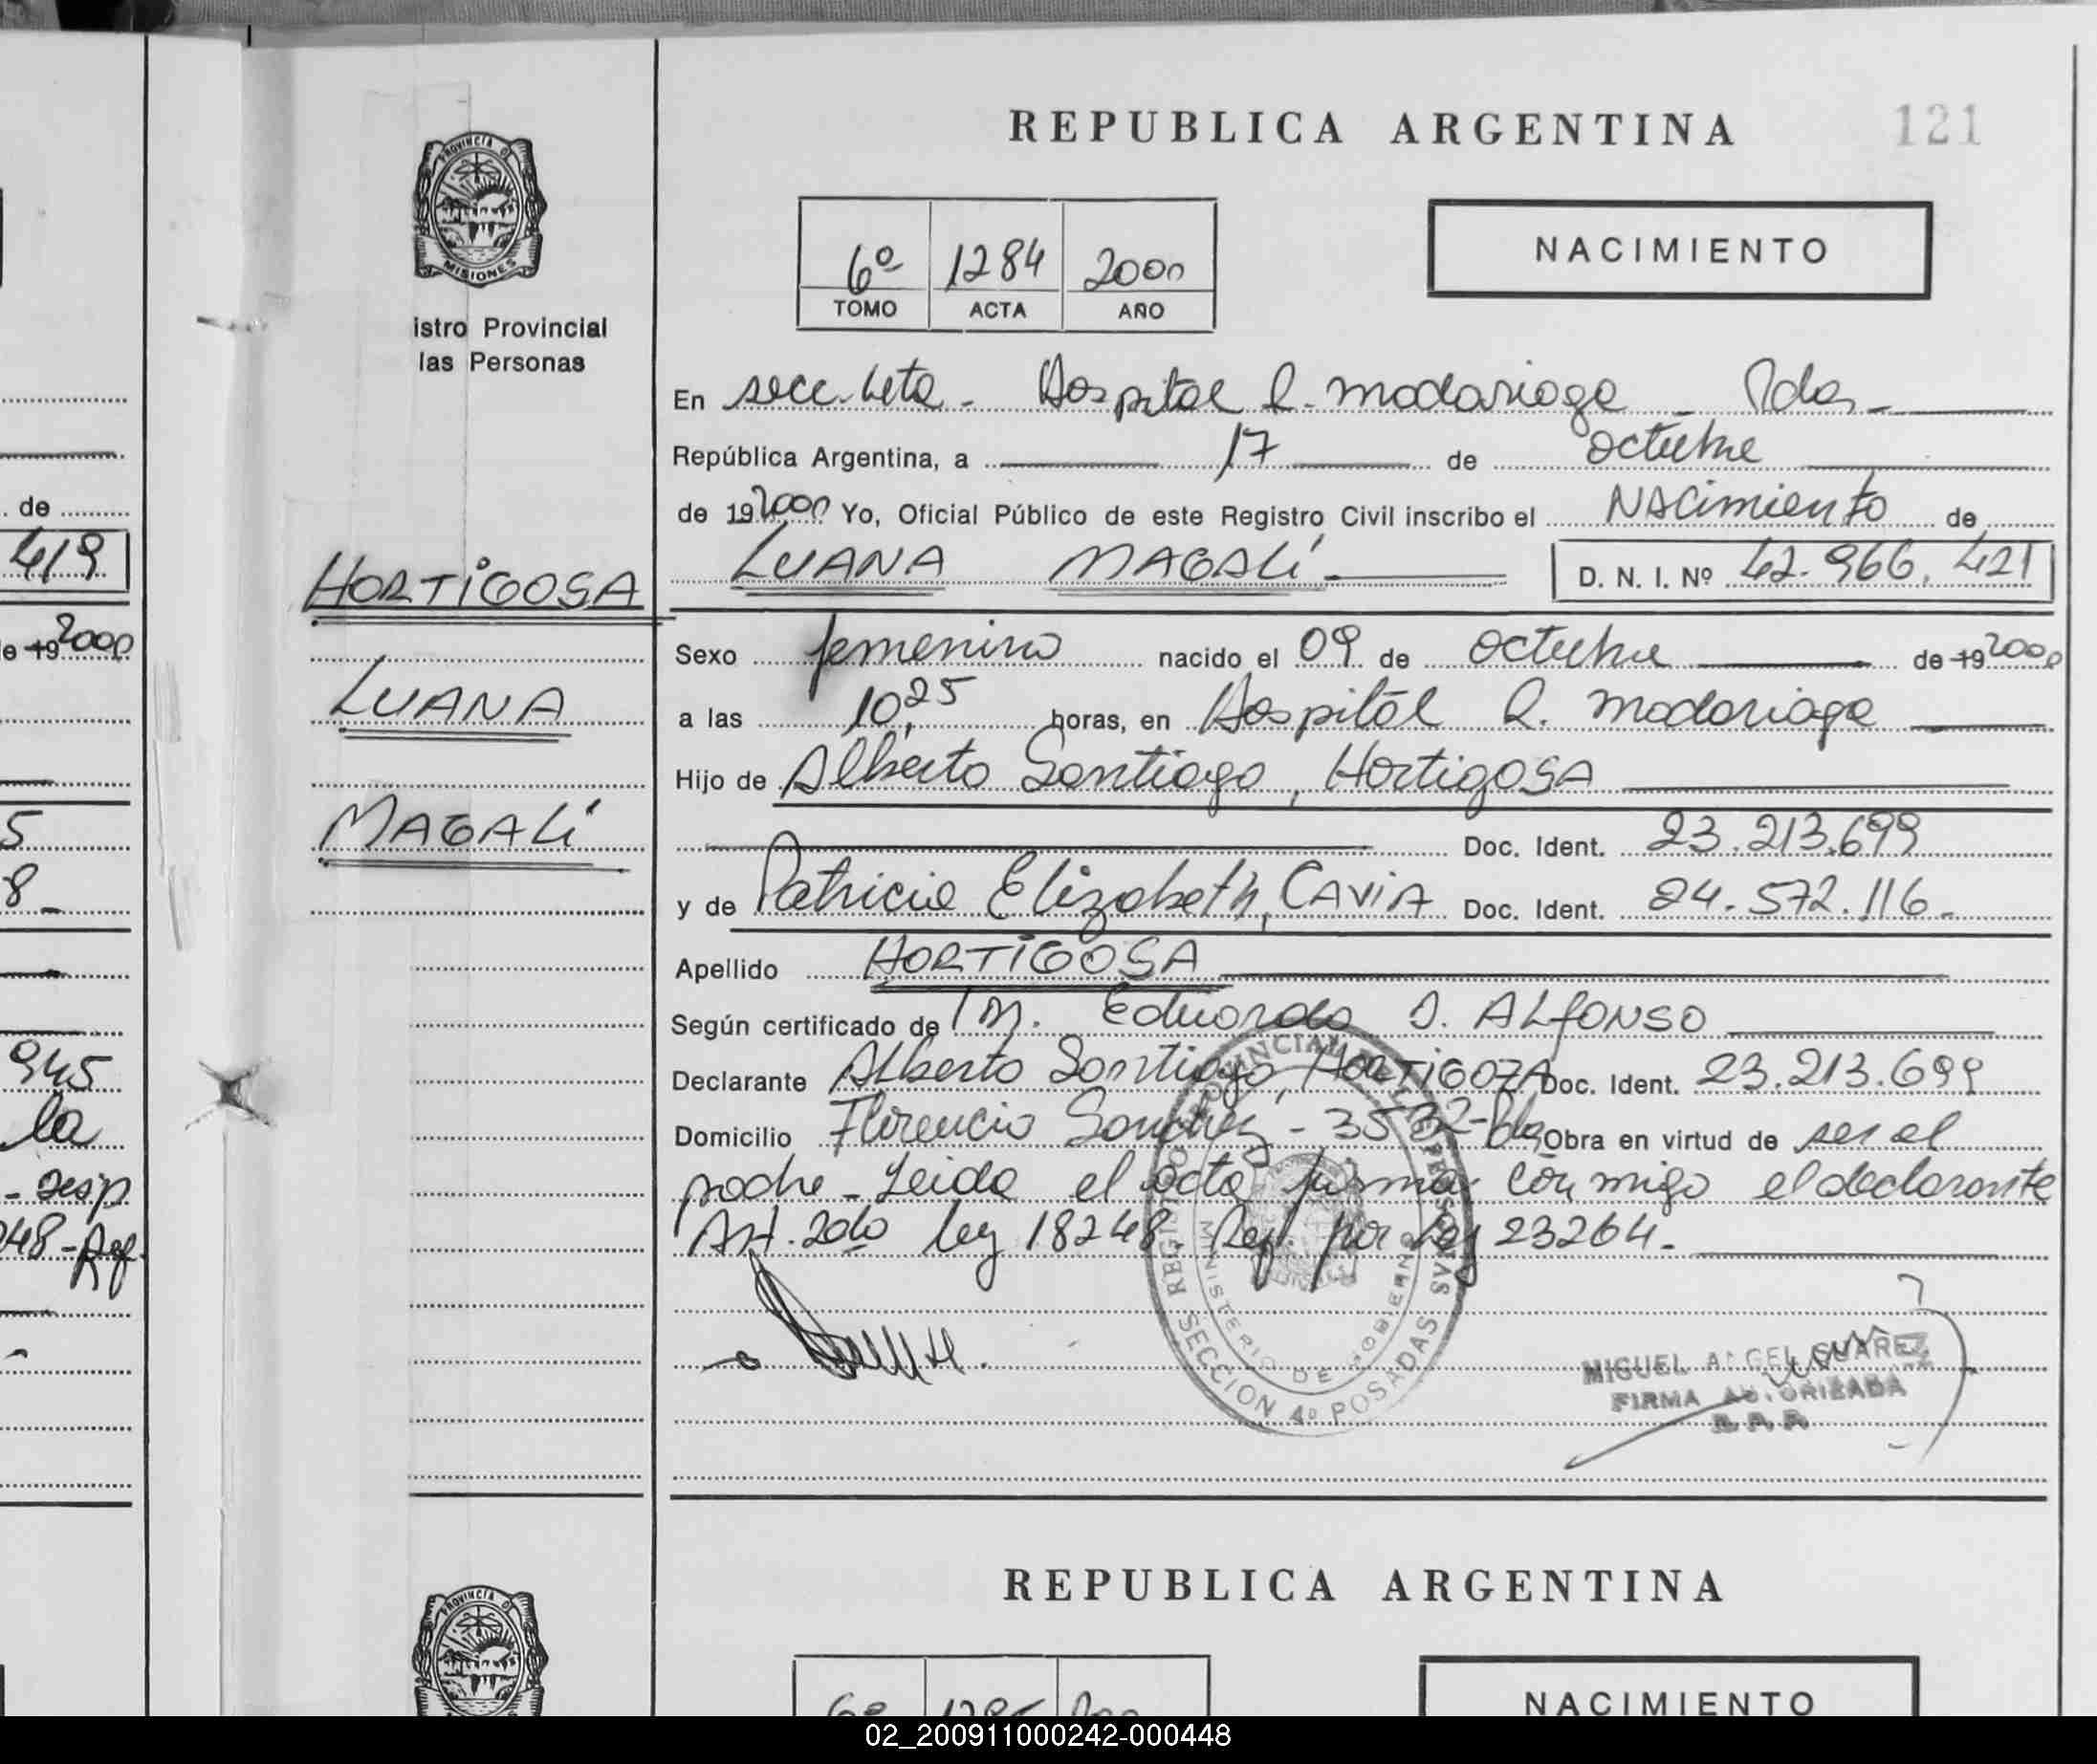 REPUBLICA ARGENTINA
121
PROVINCIA DE
MISIONES
istro Provincial
las Personas
6º 1284 2000
TOMO ACTA AÑO
NACIMIENTO
En secc. 4ta - Hospital R. Madariaga - Pdas -
República Argentina, a 17 de octubre
de 192000 Yo, Oficial Público de este Registro Civil inscribo el Nacimiento de
LUANA MAGALÍ D. N. I. Nº 42.966.421
HORTIGOSA
LUANA
MAGALÍ
Sexo femenino nacido el 09 de octubre de 19 2000
a las 10,25 horas, en Hospital R. Madariaga
Hijo de Alberto Santiago, HortigoSA
Doc. Ident. 23.213.699
y de Patricia Elizabeth, CAVIA Doc. Ident. 24.572.116.
Apellido HORTIGOSA
Según certificado de M. Eduardo D. ALFONSO
Declarante Alberto Santiago, HORTIGOZA Doc. Ident. 23.213.699
Domicilio Florencio Sanchez - 3532 - Pdas Obra en virtud de ser el
padre - Leida el acta firma conmigo el declarante
Art. 2do ley 18248. Ref. por Ley 23264.
REGISTRO PROVINCIAL DE LAS PERSONAS
MINISTERIO DE GOBIERNO
SECCION 4º POSADAS
MIGUEL ANGEL SUAREZ
FIRMA AUTORIZADA
de
419
e 19 2000
5
8 -
945
la
- desp
248 - Ref.
REPUBLICA ARGENTINA
PROVINCIA DE
6º
NACIMIENTO
02_200911000242-000448